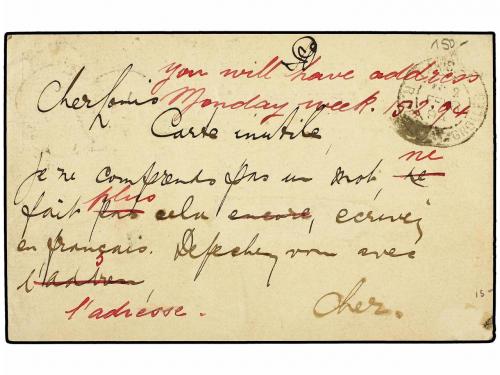 you will have address
Cher Louis Monday week. 15.1.94
Carte inutile,
Je ne comprends pas un mot, ne
fait plus cela encore, écrivez
en français. Depechez vous avec
l'adresse.
Cher.
15-